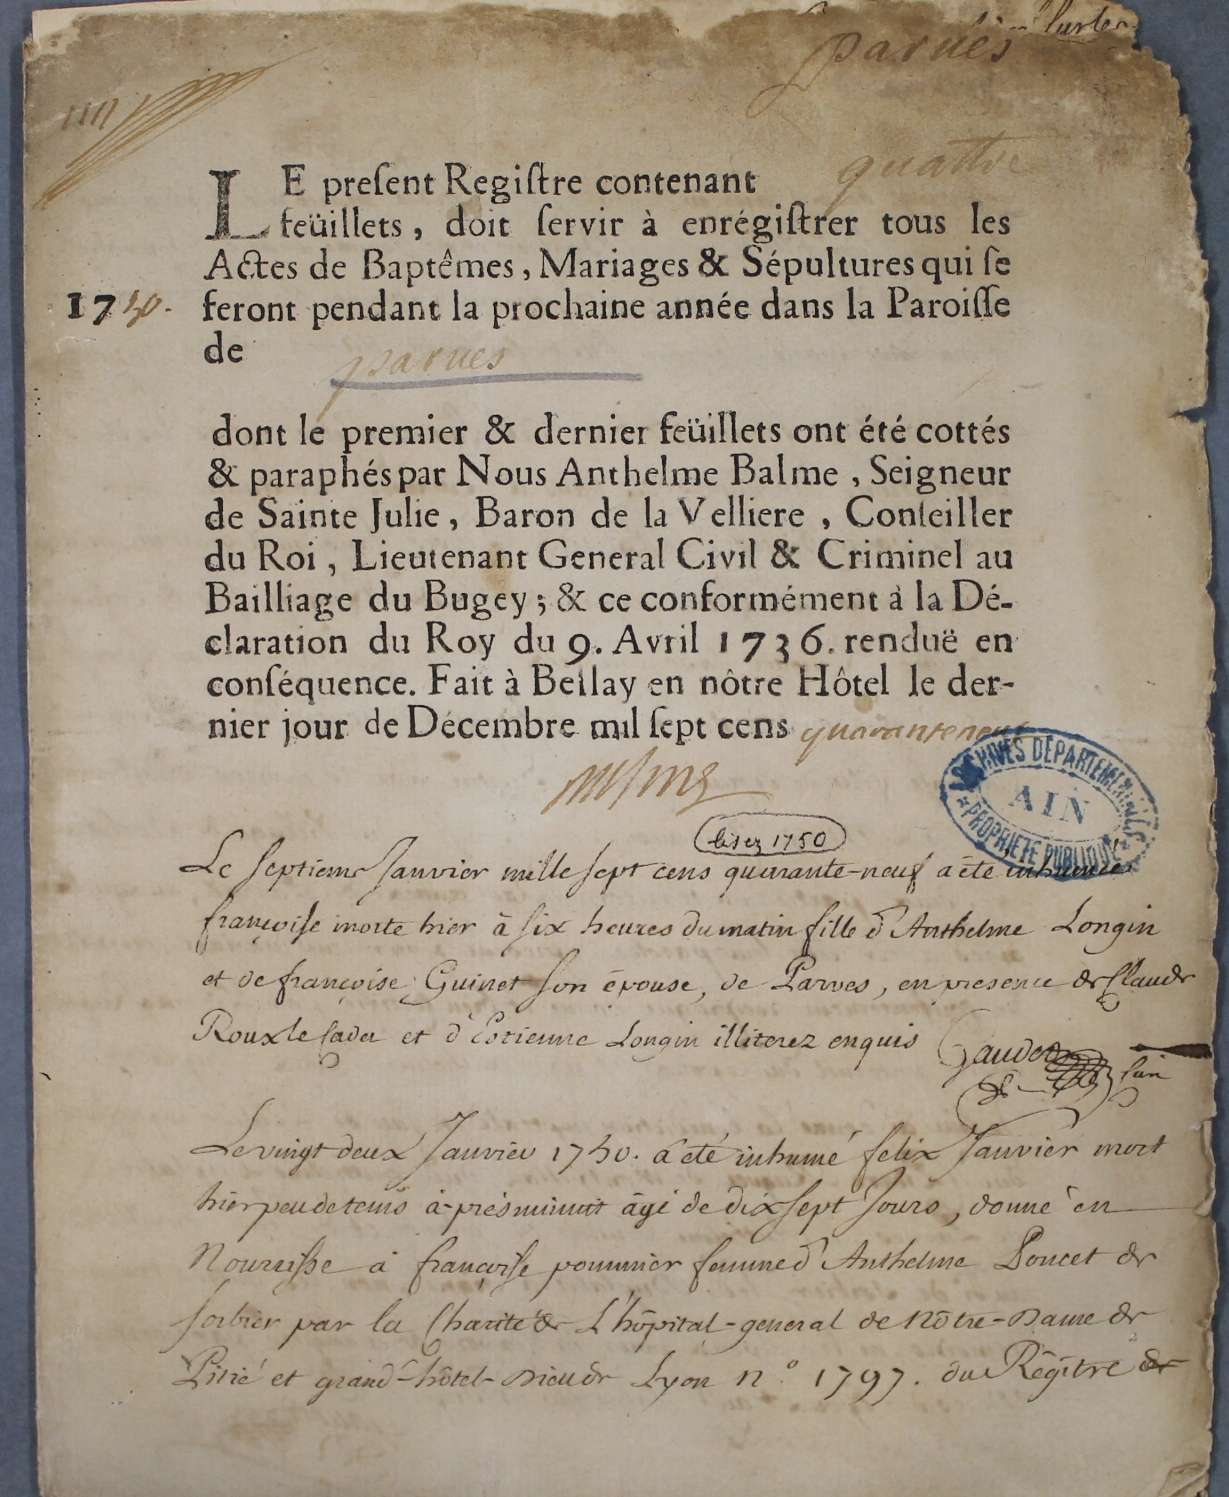 parves
LE preſent Regiſtre contenant quattre
feüillets, doit ſervir à enrégiſtrer tous les
Actes de Baptêmes, Mariages & Sépultures qui ſe
1750. feront pendant la prochaine année dans la Paroiſſe
de parves
dont le premier & dernier feüillets ont été cottés
& paraphés par Nous Anthelme Balme, Seigneur
de Sainte Julie, Baron de la Velliere, Conſeiller
du Roi, Lieutenant General Civil & Criminel au
Bailliage du Bugey; & ce conformément à la Dé-
claration du Roy du 9. Avril 1736. renduë en
conſéquence. Fait à Bellay en nôtre Hôtel le der-
nier jour de Décembre mil ſept cens quaranteneuf
ARCHIVES DÉPARTEMENTALES
AIN
PROPRIÉTÉ PUBLIQUE
lisez 1750
Le septieme Janvier mille sept cens quarante-neuf a été inhumée
françoise morte hier à six heures du matin fille d'Anthelme Longin
et de françoise Guinet son épouse, de Parves, en presence de Claude
Roux le cadet et d'Etienne Longin illiterez enquis Gaudet
Le vingt deux Janvier 1750. a été inhumé felix Janvier mort
hier peu de tems àprés minuit âgé de dix sept Jours, donné en
Nourrisse à françoise pommier femme d'Anthelme Poncet de
sorbier par la Charité de L'hôpital-general de Nôtre-Dame de
Pitié et grand-hôtel-Dieu de Lyon n.º 1797. du Régître de